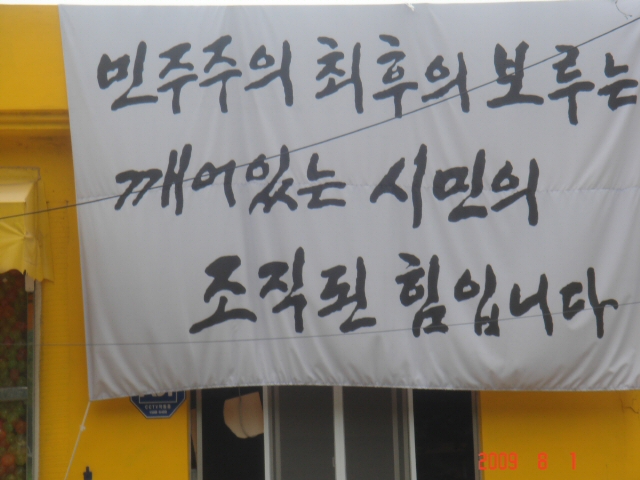 민주주의 최후의 보루는
깨어있는 시민의
조직된 힘입니다
2009 8 1